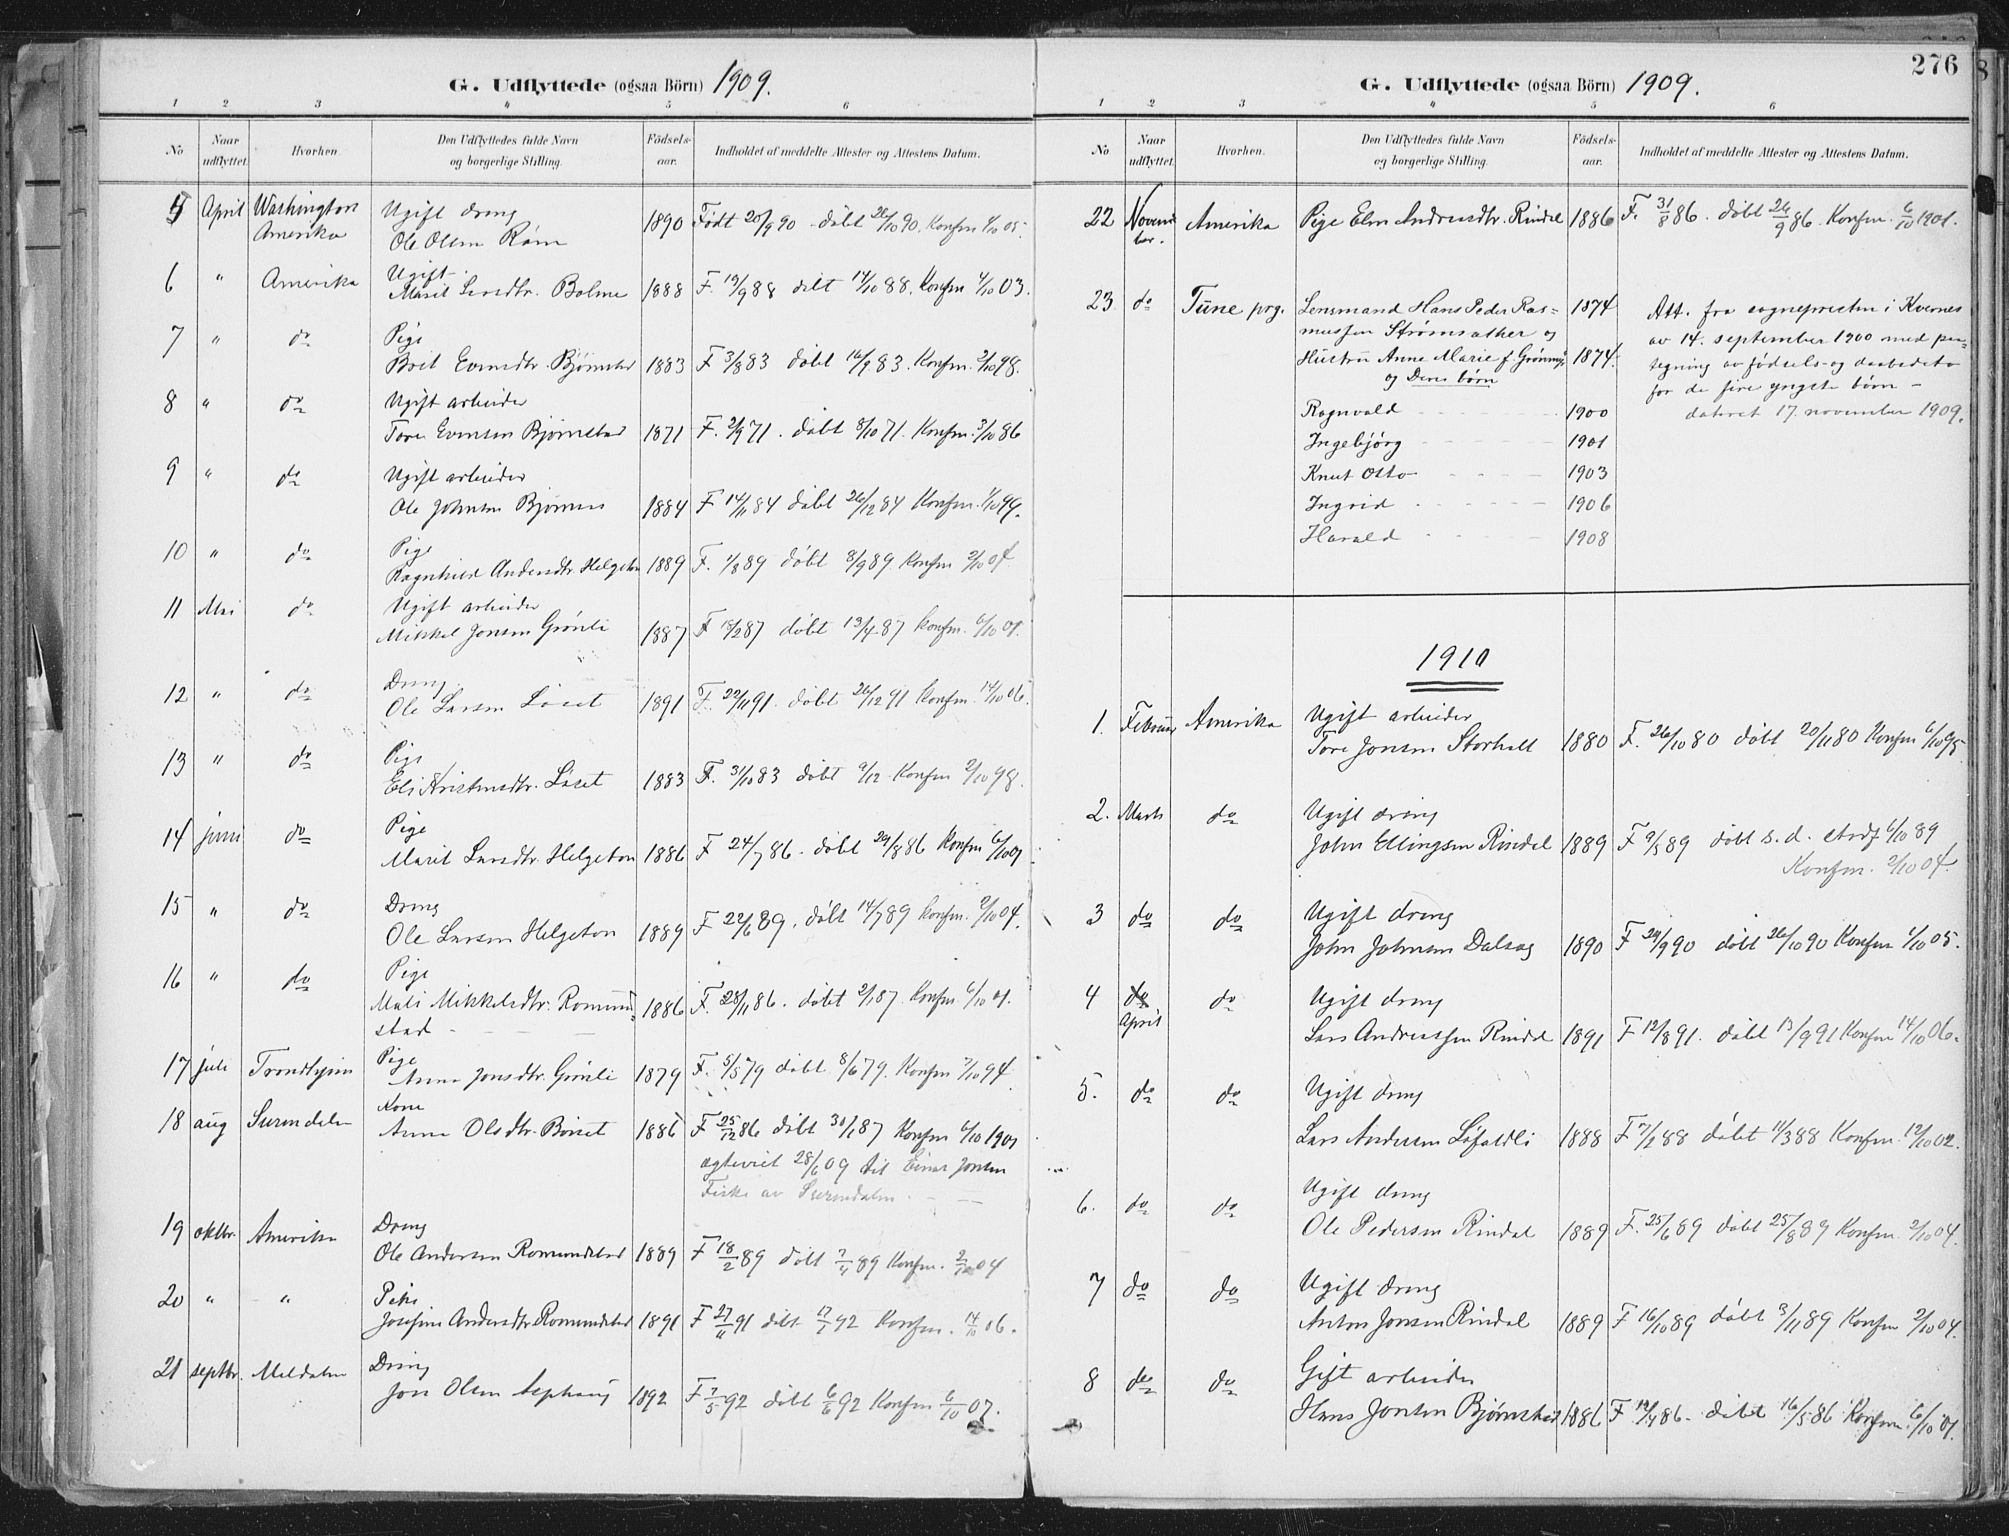 G. Udflyttede (ogsaa Börn) 1909.
1 2 3 4 5 6
No Naar udflyttet. Hvorhen. Den Udflyttedes fulde Navn og borgerlige Stilling. Födsels-aar. Indholdet af meddelte Attester og Attestens Datum.
5 April Washington Ugift dreng
Amerika Ole Olsen Røen 1890 Født 20/9 90 døbt 26/10 90. Konfm 1/10 05.
6 " Amerika Ugift
Marit Larsdtr. Bolme 1888 F. 19/9 88 døbt 14/10 88. Konfm 4/10 03.
7 " do Pige
Brit Evensdtr. Bjørnstad 1883 F 3/8 83 døbt 16/9 83. Konfm. 2/10 98.
8 " do Ugift arbeider
Tore Evensen Bjørnstad 1871 F. 2/9 71. døbt 8/10 71. Konfm. 3/10 86
9 " do Ugift arbeider
Ole Johnsen Bjørnss 1884 F 14/11 84 døbt 26/12 84 Konfm. 1/10 99.
10 " do Pige
Ragnhild Andersdtr Helgeton 1889 F. 1/8 89 døbt 8/9 89. Konfm 2/10 04.
11 Mai do Ugift arbeider
Mikkel Jonsen Grønli 1887 F 18/2 87 døbt 13/4 87 Konfm. 6/10 01.
12 " do Dreng
Ole Larsen Løset 1891 F. 22/11 91. døbt 26/12 91 Konfm. 14/10 06.
13 " do Pige
Eli Kristensdtr. Løset 1883 F. 31/10 83 døbt 9/12 Konfm 2/10 98.
14 juni do Pige
Marit Larsdtr. Helgeton 1886 F 24/7 86. døbt 29/8 86 Konfm 6/10 01
15 " do Dreng
Ole Larsen Helgeton 1889 F 22/6 89. døbt 14/7 89 Konfm. 2/10 04.
16 " do Pige
Mali Mikkelsdtr. Romund- 1886 F. 28/11 86. døbt 2/1 87. Konfm 6/10 01.
stad
17 juli Trondhjem Pige
Anne Jonsdtr. Grønli 1879 F. 5/5 79 døbt 8/6 79. Konfm 7/10 94.
18 aug Surendalen Kone
Anne Olsdtr. Børset 1886 F 25/12 86 døbt 30/1 87 Konfm 6/10 1901
egteviet 28/6 09 til Einar Jonsen
Fiske av Surendalen.
19 oktbr. Amerika Dreng
Ole Andersen Romundstad 1889 F 18/2 89 døbt 7/4 89 Konfm. 2/10 04
20 " " Pike
Josefine Andersdtr Romundstad 1891 F 27/11 91 døbt 17/1 92 Konfm. 14/10 06.
21 septbr. Meldalen Dreng
Jon Olsen Asphaug 1892 F 7/5 92 døbt 6/6 92 Konfm 6/10 07.
276
G. Udflyttede (ogsaa Börn) 1909.
1 2 3 4 5 6
No Naar udflyttet. Hvorhen. Den Udflyttedes fulde Navn og borgerlige Stilling. Födsels-aar. Indholdet af meddelte Attester og Attestens Datum.
22 Novem Amerika Pige Elen Andreasdtr. Rindal 1886 F. 31/8 86. døbt 26/9 86. Konfm. 6/10 1901.
ber.
23 do Tune prg. Lensmand Hans Peder Ras- 1874 Att. fra sognepresten i Kvernes
mussen Strømsæther og av 14. september 1900 med paa-
Hustru Anne Marie f. Grønmyr 1874. tegning av fødsels- og daabsdata
og Deres børn for de fire yngste børn –
Ragnvald 1900 dateret 17. november 1909.
Ingebjørg 1901
Knut Otto 1903
Ingrid 1906
Harald 1908
1910
1. Februar Amerika Ugift arbeider
Tore Jonsen Storholt 1880 F. 26/10 80 døbt 20/11 80 Konfm 6/10 95.
2. Marts do Ugift dreng
John Ellingsen Rindal 1889 F 9/5 89 døbt s. d. stadf 6/10 89
Konfm. 2/10 04.
3 do do Ugift dreng
John Johnsen Dalsag 1890 F 29/9 90 døbt 26/10 90 Konfm 1/10 05.
4 do do Ugift dreng
April Lars Andreassen Rindal 1891 F 12/8 91. døbt 13/9 91 Konfm 14/10 06.
5. do do Ugift dreng
Lars Andersen Løfaldli 1888 F 7/2 88 døbt 11/3 88 Konfm. 12/10 02.
6. do do Ugift dreng
Ole Pedersen Rindal 1889 F. 25/6 89 døbt 25/8 89 Konfm. 2/10 04.
7 do do Ugift dreng
Anton Jonsen Rindal 1889 F 16/10 89 døbt 3/11 89 Konfm 2/10 04.
8 do do Gift arbeider
Hans Jonsen Bjørnstad 1886 F 19/4 86. døbt 16/5 86 Konfm. 6/10 01.